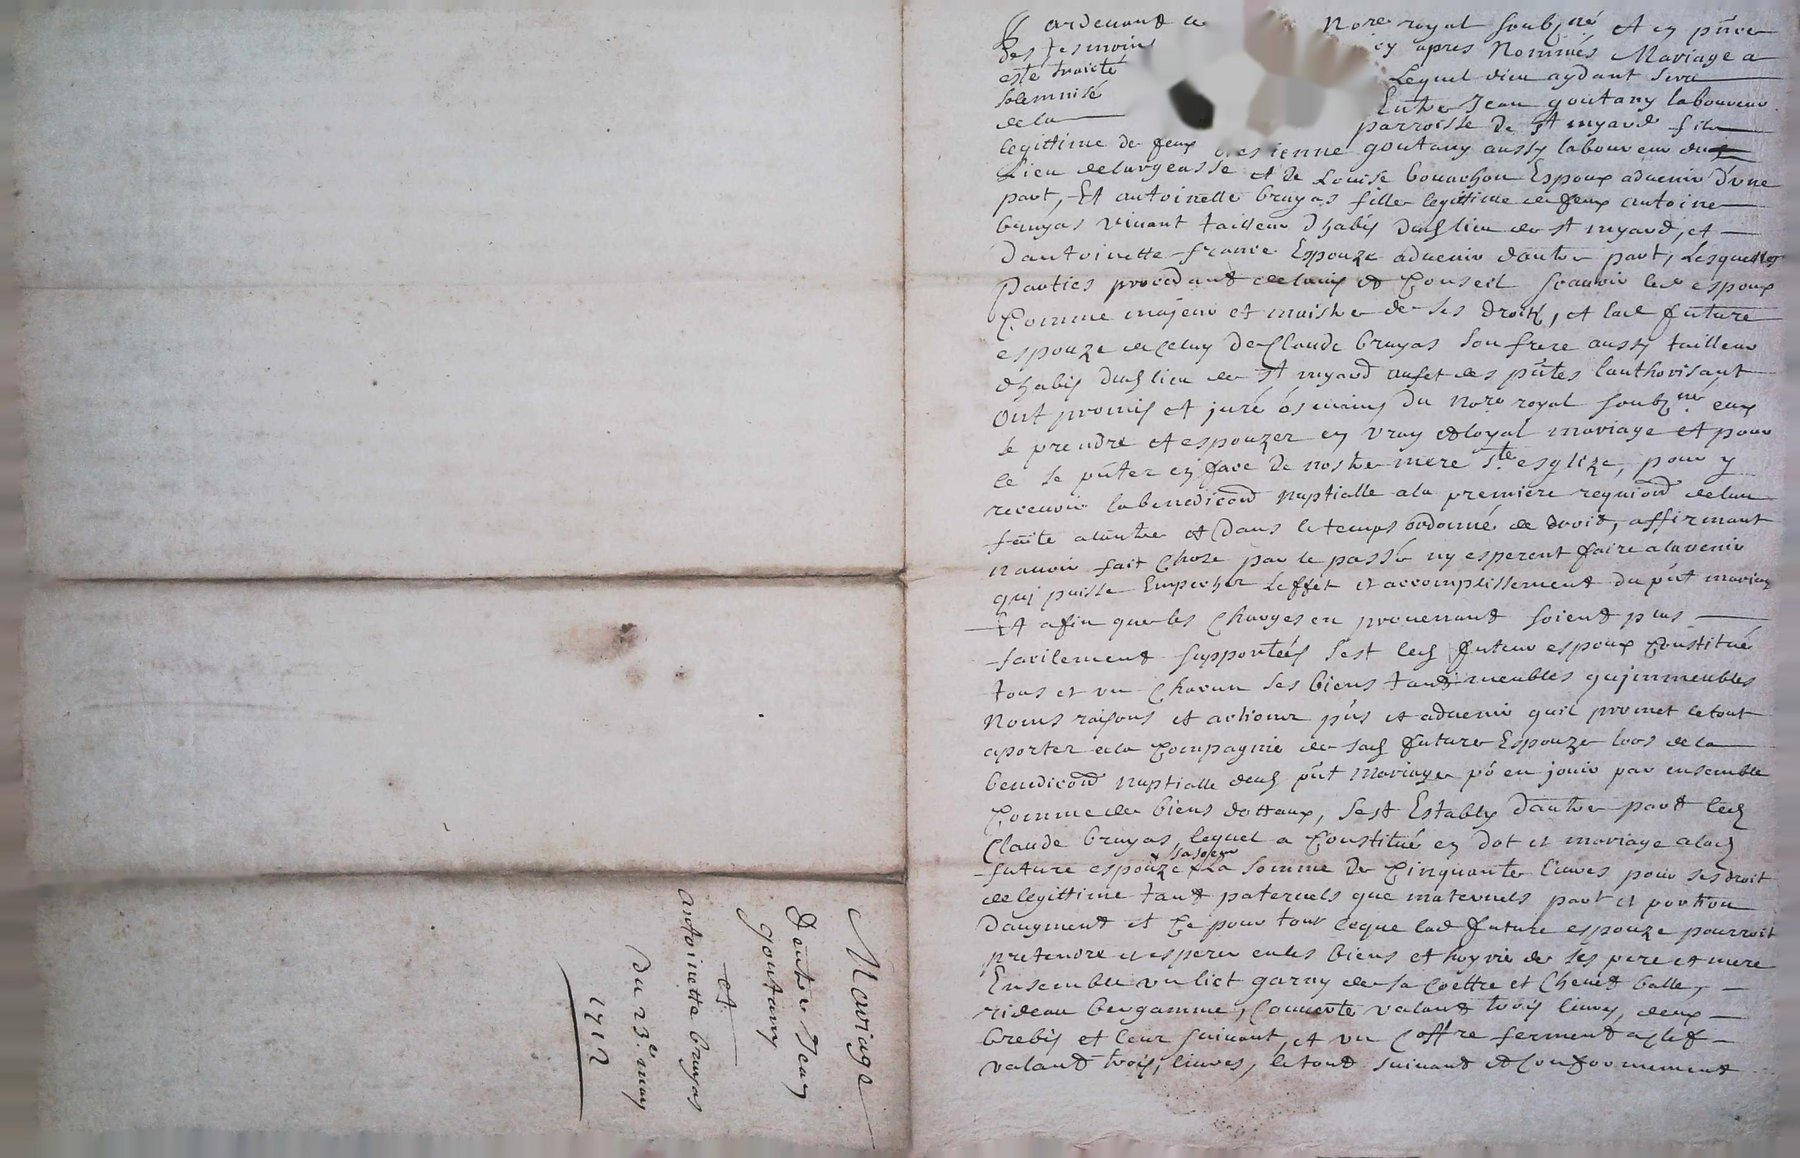 Pardeuant
Nore royal soubzne et en pnce
des tesmoins
cy apres Nommés Mariage a
esté traicté
Lequel dieu aydant sera
solemnisé
Entre Jean goutany laboureur
de la
parroisse de St myard fils
legittime de feux estienne goutany aussy laboureur dud
Lieu de largeasse et de Louise bouarhon Espoux aduenir d'vne
part, Et antoinette bruyas fille legittime de feux antoine
bruyas viuant tailleur d'habis dud lieu de st myard, et
d'antoinette france Espouze aduenir dautre part, Lesquelles
Parties procedant de lauis et Conseil scauoir led espoux
Comme majeur et maistre de ses droits, et lad future
espouze de celuy de Claude bruyas son frere aussy tailleur
d'habis dud lieu de st myard au fet des pntes l'authorisant
Ont promis et juré és mains du Nore royal soubzne eux
se prendre et espouzer en vray et loyal mariage et pour
ce se pnter en face de nostre mere ste esglize, pour y
receuoir la benediction nuptialle a la premiere requion de lun
faite a lautre et dans le temps ordonné de droit, affirmant
n'auoir fait Chose par le passé ny esperent faire a laduenir
quj puisse Empecher Leffet et accomplissement du pnt mariage
Et afin que les Charges en prouenant soient plus
facilement supportées s'est led futeur espoux Constitué
tous et vn Chacun ses biens tant meubles quj inmeubles
Noms raisons et actions pns et aduenir quil promet le tout
aporter a la Compagnie de sad future Espouze lors de la
benediction nuptialle dud pnt Mariage po en jouir par ensemble
Comme de biens dottaux, sest Estably d'autre part led
Claude bruyas lequel a Constitué en dot et mariage a lad
sa soeur
future espouze La somme de Cinquante liures pour ses droit
de legittime tant paternels que maternels part et portion
daugment et Ce pour tout ceque lad future espouze pourroit
pretendre et esperer en les biens et hoyrie de ses pere et mere
Ensemble vn lict garny de sa Coettre et Cheuet balle,
rideau bergamme, Couuerte valant trois liures, deux
brebis et leur suiuant, et vn Coffre fermant a clef
valant trois liures, le tout suiuant et Conformement
Mariage
Dentre Jean
goutany
et
antoinette bruyas
Du 23e may
1712